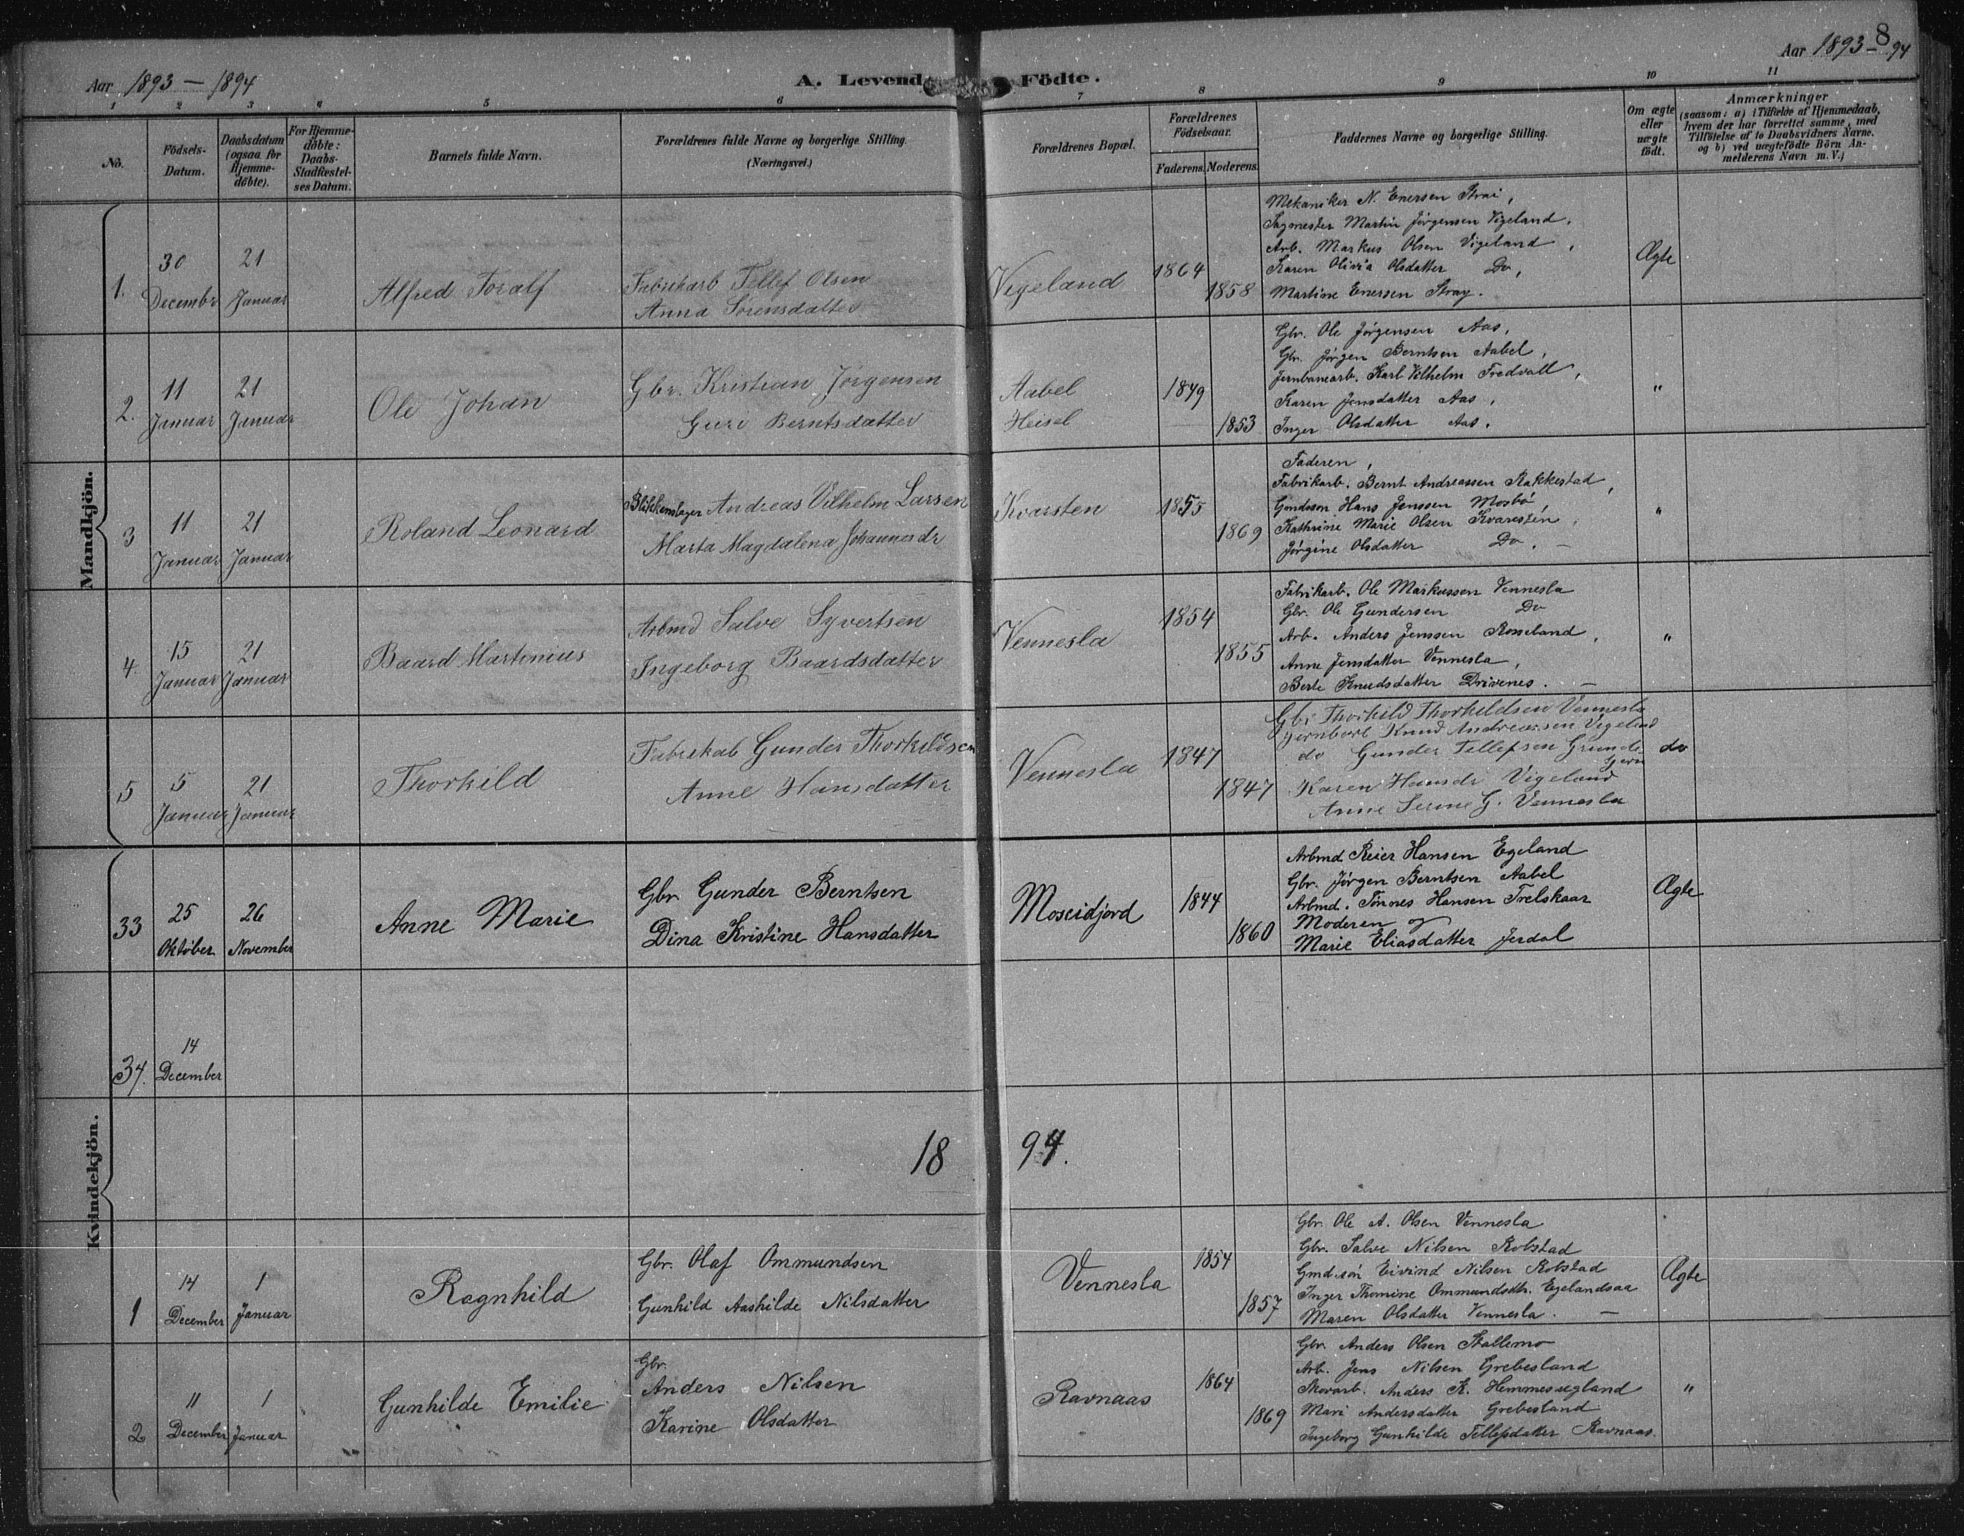 8
Aar 1893 — 1894
A. Levende Födte.
Aar 1893 - 94
1 2 3 4 5 6 7 8 9 10 11
No.
Födsels-Datum.
Daabsdatum (ogsaa for Hjemme-döbte).
For Hjemme-döbte: Daabs-Stadfæstel-ses Datum.
Barnets fulde Navn.
Forældrenes fulde Navne og borgerlige Stilling. (Næringsvei.)
Forældrenes Bopæl.
Forældrenes Födselsaar.
Faderens. Moderens.
Faddernes Navne og borgerlige Stilling.
Om ægte eller uægte födt.
Anmærkninger
(saasom: a) i Tilfælde af Hjemmedaab, hvem der har forrettet samme, med Tilföielse af to Daabsvidners Navne, og b) ved uægtefödte Börn An-melderens Navn m. V.)
Mandkjön.
1. 30 December 21 Januar
Alfred Toralf
Fabrikarb Tellef Olsen
Anna Sørensdatter
Vigeland
1864 1858
Mekaniker N. Enersen Strai,
Sagmester Martin Jørgensen Vigeland,
Arb. Markus Olsen Vigeland,
Karen Olivia Olsdatter Do,
Martine Enersen Stray.
Ægte
2. 11 Januar 21 Januar
Ole Johan
Gbr. Kristian Jørgensen
Guri Berntsdatter
Aabel
Heisel
1849 1853
Gbr. Ole Jørgensen Aas,
Gbr. Jørgen Berntsen Aabel,
Jernbanearb. Karl Vilhelm Fredvall,
Karen Jensdatter Aas,
Inger Olsdatter Aas.
"
3 11 Januar 21 Januar
Roland Leonard
Blikkenslager Andreas Vilhelm Larsen
Marta Magdalena Johannesdr
Kvarsten
1855 1869
Faderen,
Fabrikarb. Bernt Andreassen Rakkestad,
Gmdssøn Hans Jenssen Mosbø,
Kathrine Marie Olsen Kvaresten,
Jørgine Olsdatter Do. —
"
4. 15 Januar 21 Januar
Baard Martinius
Arbmd Salve Syvertsen
Ingeborg Baardsdatter
Vennesla
1854 1855
Fabrikarb. Ole Markussen Vennesla
Gbr. Ole Gundersen Do
Arb. Anders Jenssen Roseland,
Anne Jensdatter Vennesla,
Berte Knudsdatter Drivenes. —
"
5 5 Januar 21 Januar
Thorkild
Fabrikab Gunder Thorkildsen
Anne Hansdatter
Vennesla
1847 1847
Gbr Thorkild Thorkildsen Vennesla
Knud Andreassen Vigeland
do Gunder Tellefsen
Karen Hansdr Vigeland
Anne Serine G. Vennesla
do
Kvindekjön.
33 25 Oktober 26 November
Anne Marie
Gbr Gunder Berntsen
Dina Kristine Hansdatter
Moseidjord
1844 1860
Arbmd Reier Hansen Egeland
Gbr. Jørgen Berntsen Aabel
Arbmd. Tønnes Hansen Trelskaar
Moderen og
Marie Eliasdatter Jerdal
Ægte
34. 14 December
18 94.
1 14 December 1 Januar
Ragnhild
Gbr. Olaf Ommundsen
Gunhild Aashilde Nilsdatter
Vennesla
1854 1857
Gbr. Ole A. Olsen Vennesla
Gbr. Salve Nilsen Robstad
Gmdssøn Eivind Nilsen Robstad
Inger Thomine Ommundsdtr. Egelandsaa
Maren Olsdatter Vennesla. —
Ægte
2 11 December 1 Januar
Gunhilde Emilie
Gbr.
Anders Nilsen
Karine Olsdatter
Ravnaas
1864 1869
Gbr. Anders Olsen Stallemo
Arb. Jens Nilsen Grebesland
Skovarb. Anders K. Hemmessegland
Mari Andersdatter Grebesland
Ingeborg Gunhilde Tellefsdatter Ravnaas.
"